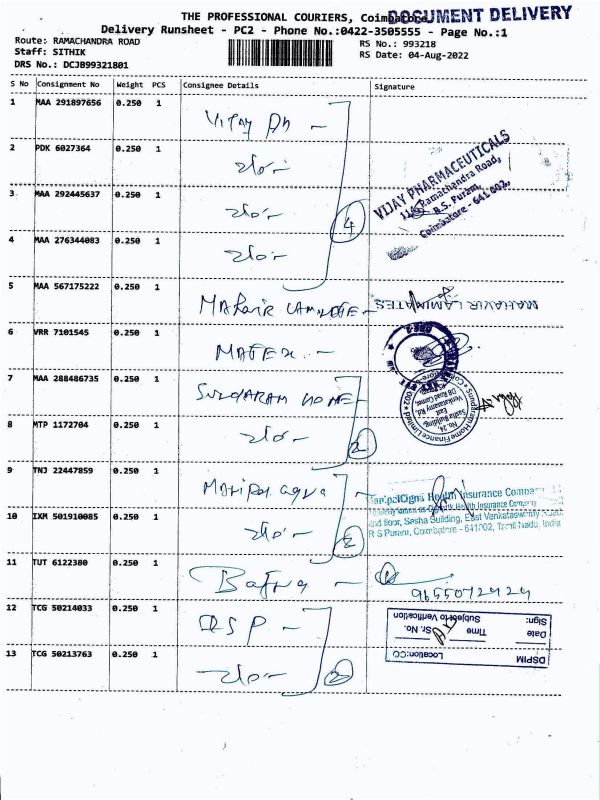 THE PROFESSIONAL COURIERS, Coimbatore
DOCUMENT DELIVERY
Delivery Runsheet - PC2 - Phone No.:0422-3505555 - Page No.:1
Route: RAMACHANDRA ROAD
RS No.: 993218
Staff: SITHIK
RS Date: 04-Aug-2022
DRS No.: DCJB99321801
S No Consignment No Weight PCS Consignee Details Signature
1 MAA 291897656 0.250 1 Vijay Ph -
2 PDK 6027364 0.250 1
3 MAA 292445637 0.250 1
4 MAA 276344083 0.250 1
4
VIJAY PHARMACEUTICALS
Ramachandra Road,
R.S. Puram,
Coimbatore - 641 002.
5 MAA 567175222 0.250 1
MAHAVIR LAMINATES
6 VRR 7101545 0.250 1
7 MAA 288486735 0.250 1
8 MTP 1172704 0.250 1
2
Sundaram Home Finance Limited
No. 24,
Sasha Building,
East
Venkataswamy Rd.
DB Road Corner,
9 TNJ 22447859 0.250 1
10 IXM 501910085 0.250 1
2
ManipalCigna Health Insurance Company
2nd floor, Sasha Building, East Venkataswamy Road
R S Puram, Coimbatore - 641002, Tamil Nadu, India
11 TUT 6122380 0.250 1 Bafna -
1
9655072929
12 TCG 50214033 0.250 1 DSP -
13 TCG 50213763 0.250 1
2
DSPIM Location:CO
Date Time Sr. No.
Sign: Subject to Verification